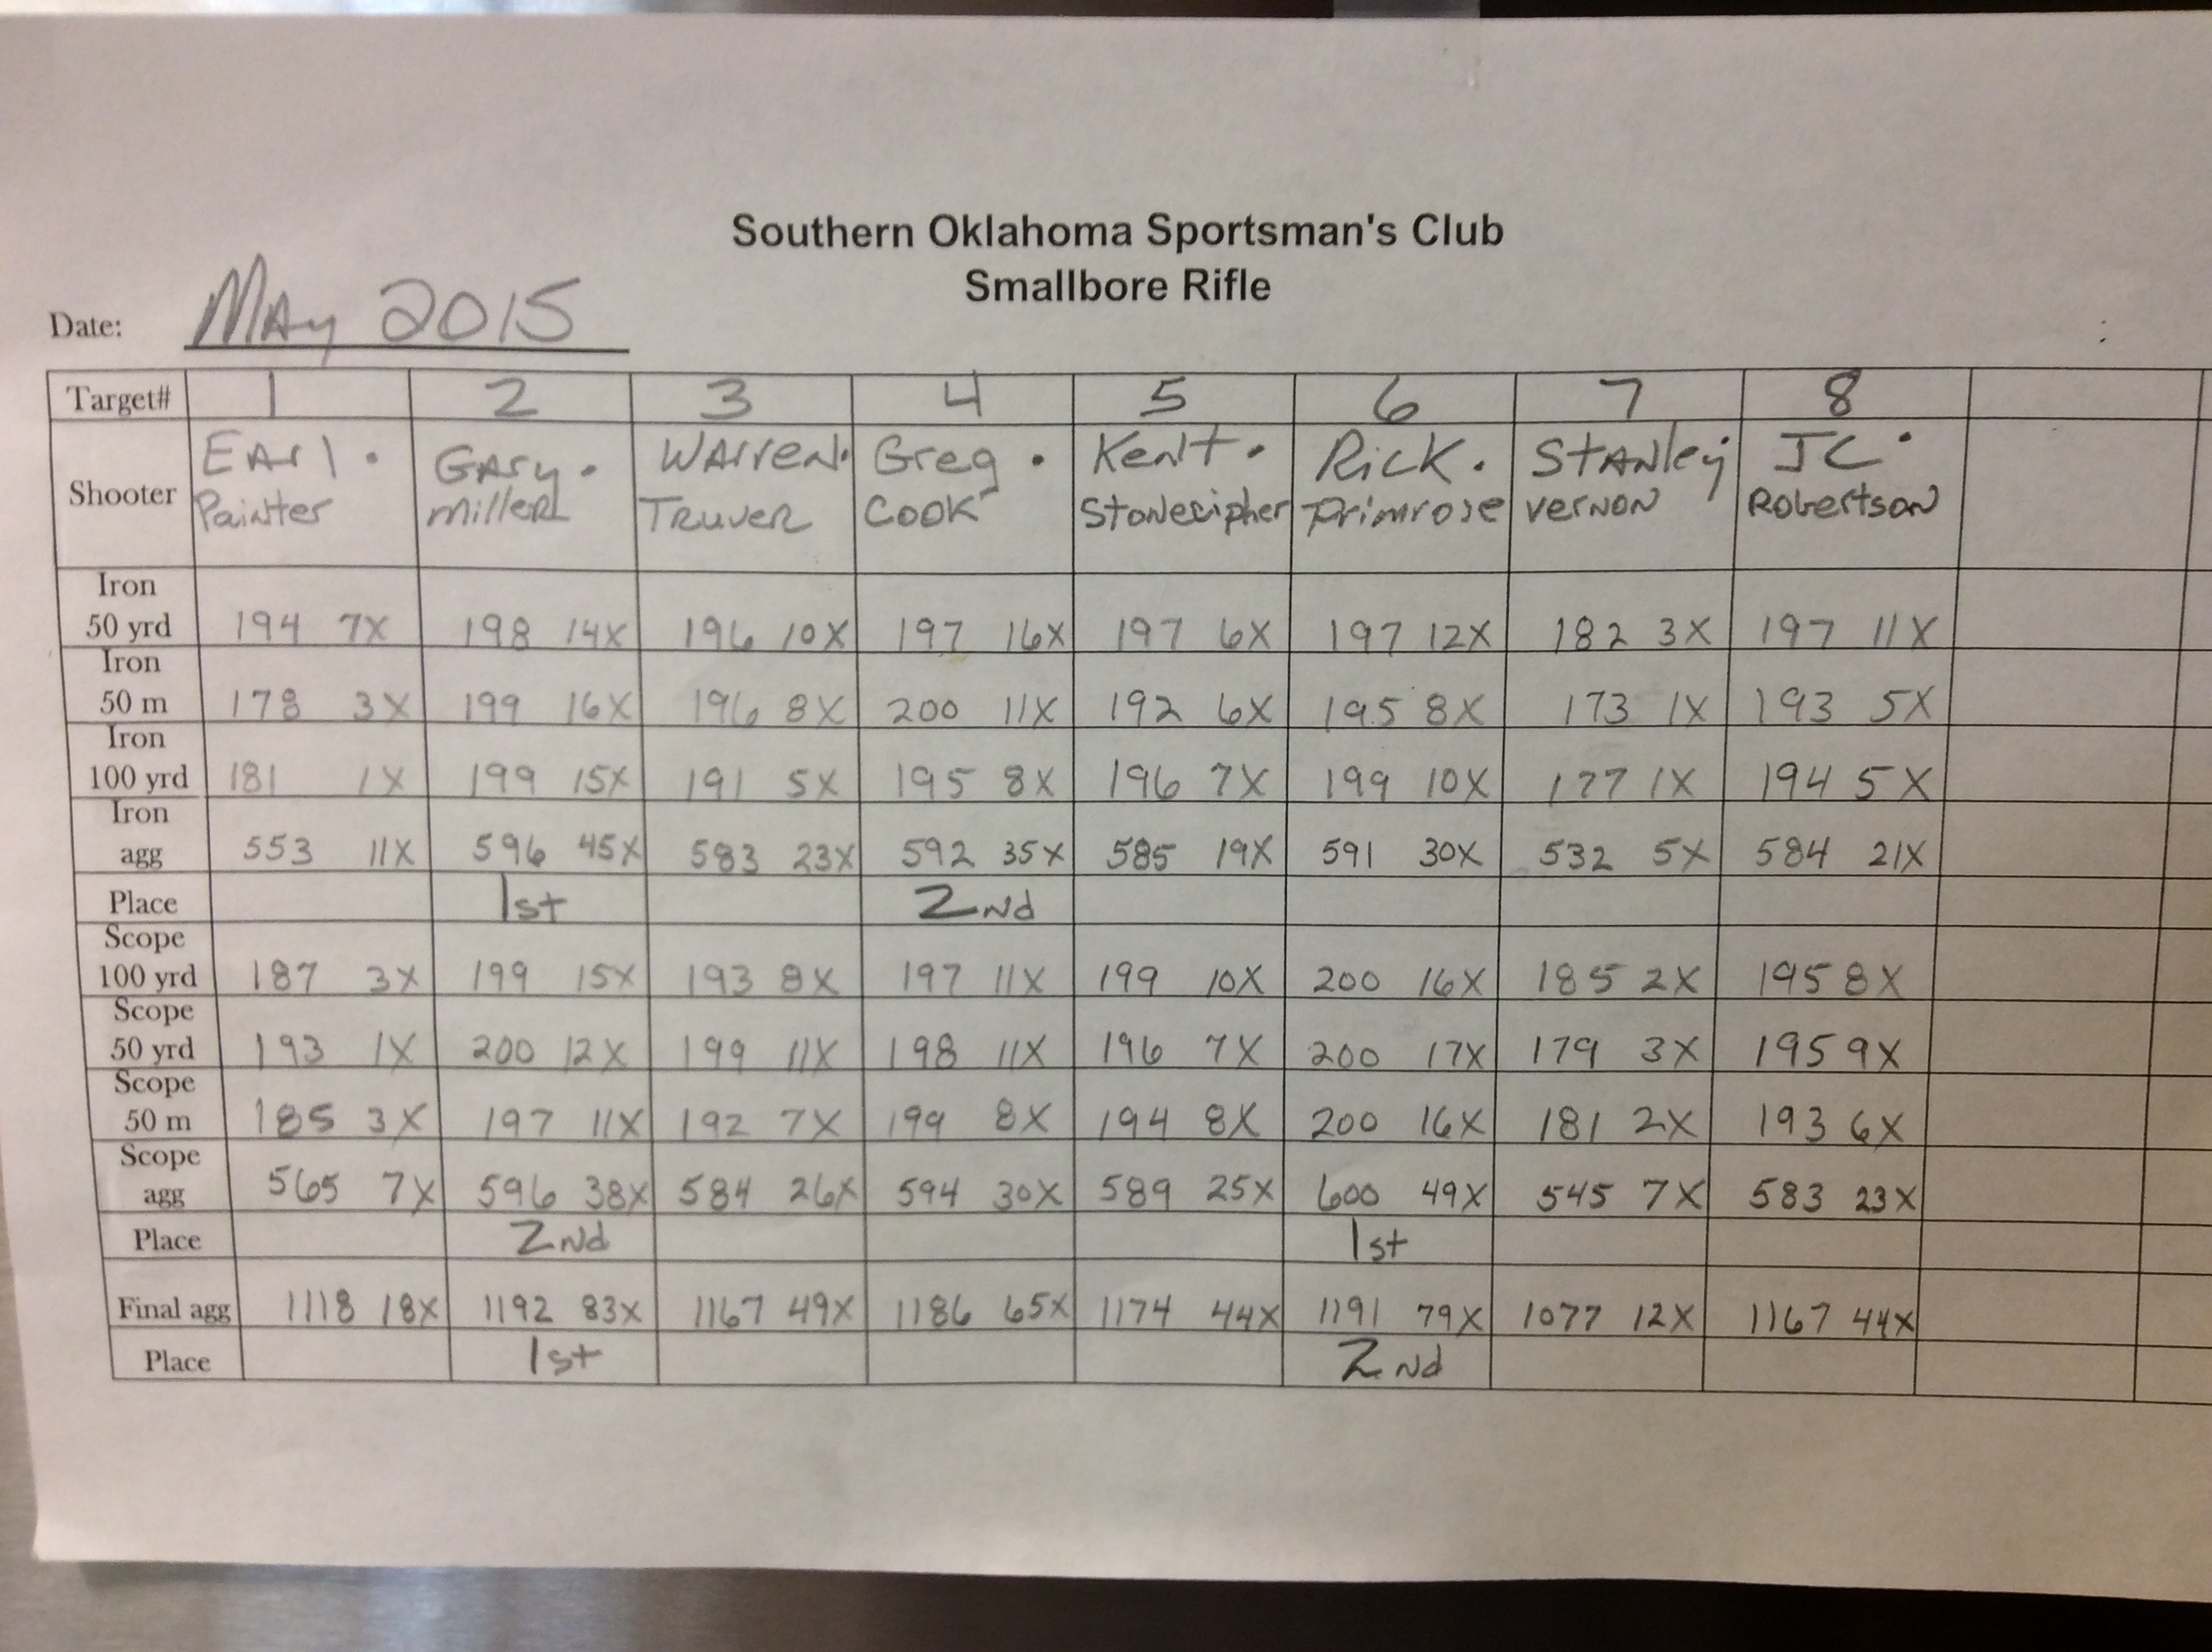 Southern Oklahoma Sportsman's Club
Smallbore Rifle
Date: May 2015
Target# 1 2 3 4 5 6 7 8
Shooter Earl Painter Gary Miller Warren Truver Greg Cook Kent Stonecipher Rick Primrose Stanley Vernon JC Robertson
Iron 50 yrd 194 7X 198 14X 196 10X 197 16X 197 6X 197 12X 182 3X 197 11X
Iron 50 m 178 3X 199 16X 196 8X 200 11X 192 6X 195 8X 173 1X 193 5X
Iron 100 yrd 181 1X 199 15X 191 5X 195 8X 196 7X 199 10X 177 1X 194 5X
Iron agg 553 11X 596 45X 583 23X 592 35X 585 19X 591 30X 532 5X 584 21X
Place 1st 2nd
Scope 100 yrd 187 3X 199 15X 193 8X 197 11X 199 10X 200 16X 185 2X 195 8X
Scope 50 yrd 193 1X 200 12X 199 11X 198 11X 196 7X 200 17X 179 3X 195 9X
Scope 50 m 185 3X 197 11X 192 7X 199 8X 194 8X 200 16X 181 2X 193 6X
Scope agg 565 7X 596 38X 584 26X 594 30X 589 25X 600 49X 545 7X 583 23X
Place 2nd 1st
Final agg 1118 18X 1192 83X 1167 49X 1186 65X 1174 44X 1191 79X 1077 12X 1167 44X
Place 1st 2nd